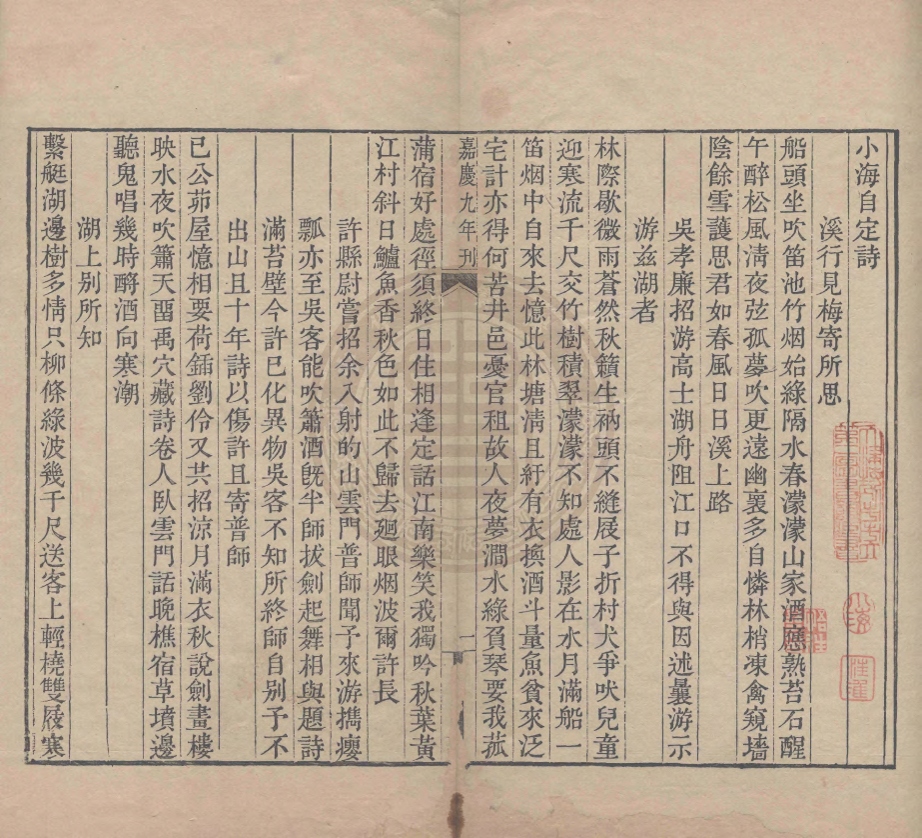 小海自定詩
溪行見梅寄所思
船頭坐吹笛池竹烟始綠隔水春濛濛山家酒應熟苔石醒
午醉松風淸夜弦孤夢吹更遠幽裏多自憐林梢凍禽窺墻
陰餘雪護思君如春風日日溪上路
吳孝廉招游高士湖舟阻江口不得與因述曩游示
游兹湖者
林際歇微雨蒼然秋籟生衲頭不縫屐子折村犬爭吠兒童
迎寒流千尺交竹樹積翠濛濛不知處人影在水月滿船一
笛烟中自來去憶此林塘淸且紆有衣換酒斗量魚貧來泛
宅計亦得何苦井邑憂官租故人夜夢澗水綠負琴要我菰
嘉慶九年刊
一
蒲宿好處徑須終日住相逢定話江南樂笑我獨吟秋葉黃
江村斜日鱸魚香秋色如此不歸去廻眼烟波爾許長
許縣尉嘗招余入射的山雲門普師聞予來游檇癭
瓢亦至吳客能吹簫酒旣半師拔劍起舞相與題詩
滿苔壁今許已化異物吳客不知所終師自别予不
出山且十年詩以傷許且寄普師
已公茆屋憶相要荷鍤劉伶又共招涼月滿衣秋說劍畫樓
映水夜吹簫天畱禹穴藏詩卷人臥雲門話晚樵宿草墳邊
聽鬼唱幾時酹酒向寒潮
湖上别所知
繫艇湖邊樹多情只柳條綠波幾千尺送客上輕橈雙屐寒